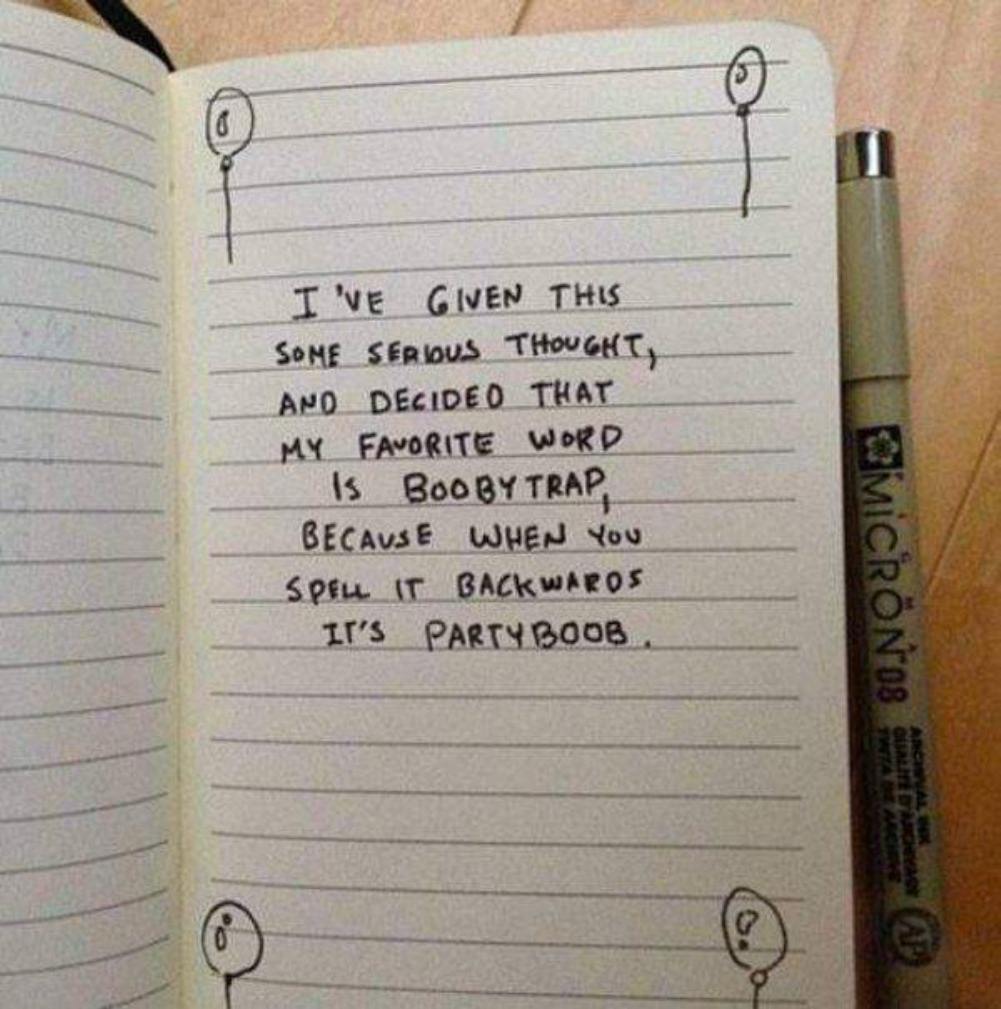 I'VE GIVEN THIS
SOME SERIOUS THOUGHT,
AND DECIDED THAT
MY FAVORITE WORD
IS BOOBYTRAP,
BECAUSE WHEN YOU
SPELL IT BACKWARDS
IT'S PARTYBOOB.
MICRON 08
ARCHIVAL INK
QUALITÉ D'ARCHIVAGE
TINTA DE ARCHIVE
AP